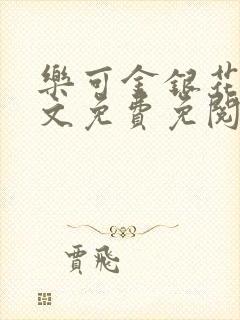 樂可金銀花
文免費免閱
賈飛